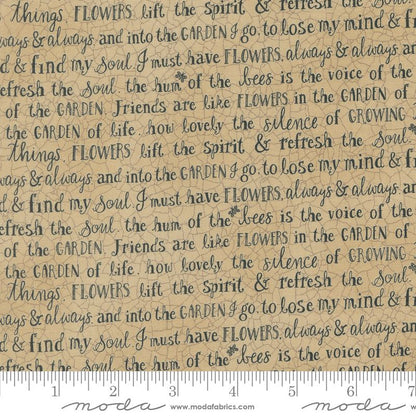 things. FLOWERS lift the Spirit & refresh the Soul
always & always and into the GARDEN I go, to lose my mind &
d & find my Soul. I must have FLOWERS, always & always an
refresh the Soul. the hum of the bees is the voice of the
of the GARDEN. Friends are like FLOWERS in the GARDEN of
the GARDEN of life. how lovely the silence of GROWING
things. FLOWERS lift the Spirit & refresh the Soul
ways & always and into the GARDEN I go, to lose my mind & f
d & find my Soul. I must have FLOWERS, always & always an
efresh the Soul. the hum of the bees is the voice of the
of the GARDEN. Friends are like FLOWERS in the GARDEN of
the GARDEN of life. how lovely the silence of GROWING
things. FLOWERS lift the Spirit & refresh the Soul
always & always and into the GARDEN I go, to lose my mind & f
d & find my Soul. I must have FLOWERS, always & always an
refresh the Soul. the hum of the bees is the voice of the
1 2 3 4 5 6 7
moda www.modafabrics.com moda